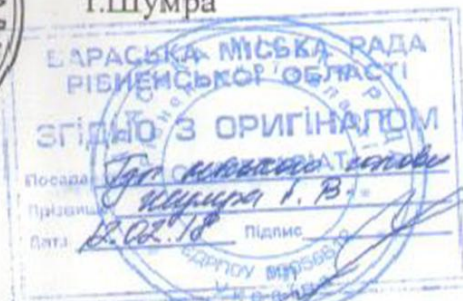 І.Шумра
ВАРАСЬКА МІСЬКА РАДА
РІВНЕНСЬКОЇ ОБЛАСТІ
ЗГІДНО З ОРИГІНАЛОМ
Посада
міського голови
Прізвище Шумра І. В.
Дата 12.02.18 Підпис